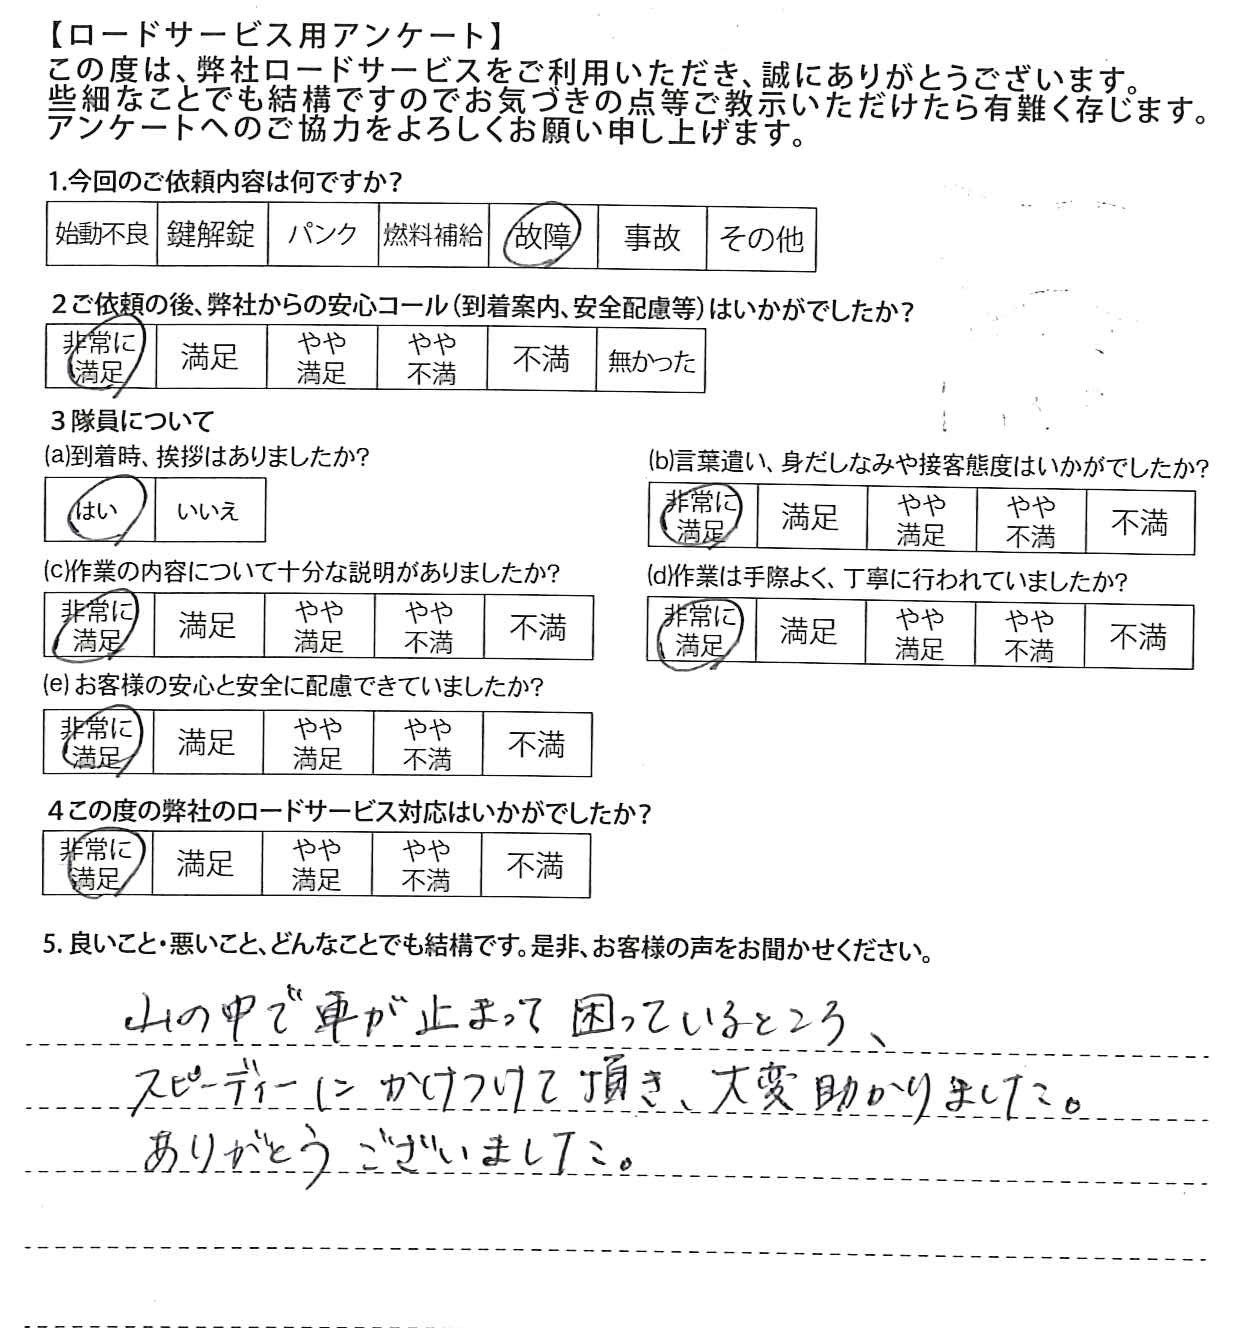 【ロードサービス用アンケート】
この度は、弊社ロードサービスをご利用いただき、誠にありがとうございます。
些細なことでも結構ですのでお気づきの点等ご教示いただけたら有難く存じます。
アンケートへのご協力をよろしくお願い申し上げます。
1.今回のご依頼内容は何ですか?
始動不良 鍵解錠 パンク 燃料補給 故障 事故 その他
2ご依頼の後、弊社からの安心コール(到着案内、安全配慮等)はいかがでしたか?
非常に満足 満足 やや満足 やや不満 不満 無かった
3隊員について
(a)到着時、挨拶はありましたか?
はい いいえ
(b)言葉遣い、身だしなみや接客態度はいかがでしたか?
非常に満足 満足 やや満足 やや不満 不満
(c)作業の内容について十分な説明がありましたか?
非常に満足 満足 やや満足 やや不満 不満
(d)作業は手際よく、丁寧に行われていましたか?
非常に満足 満足 やや満足 やや不満 不満
(e)お客様の安心と安全に配慮できていましたか?
非常に満足 満足 やや満足 やや不満 不満
4この度の弊社のロードサービス対応はいかがでしたか?
非常に満足 満足 やや満足 やや不満 不満
5. 良いこと・悪いこと、どんなことでも結構です。是非、お客様の声をお聞かせください。
山の中で車が止まって困っているところ、
スピーディーにかけつけて頂き、大変助かりました。
ありがとうございました。